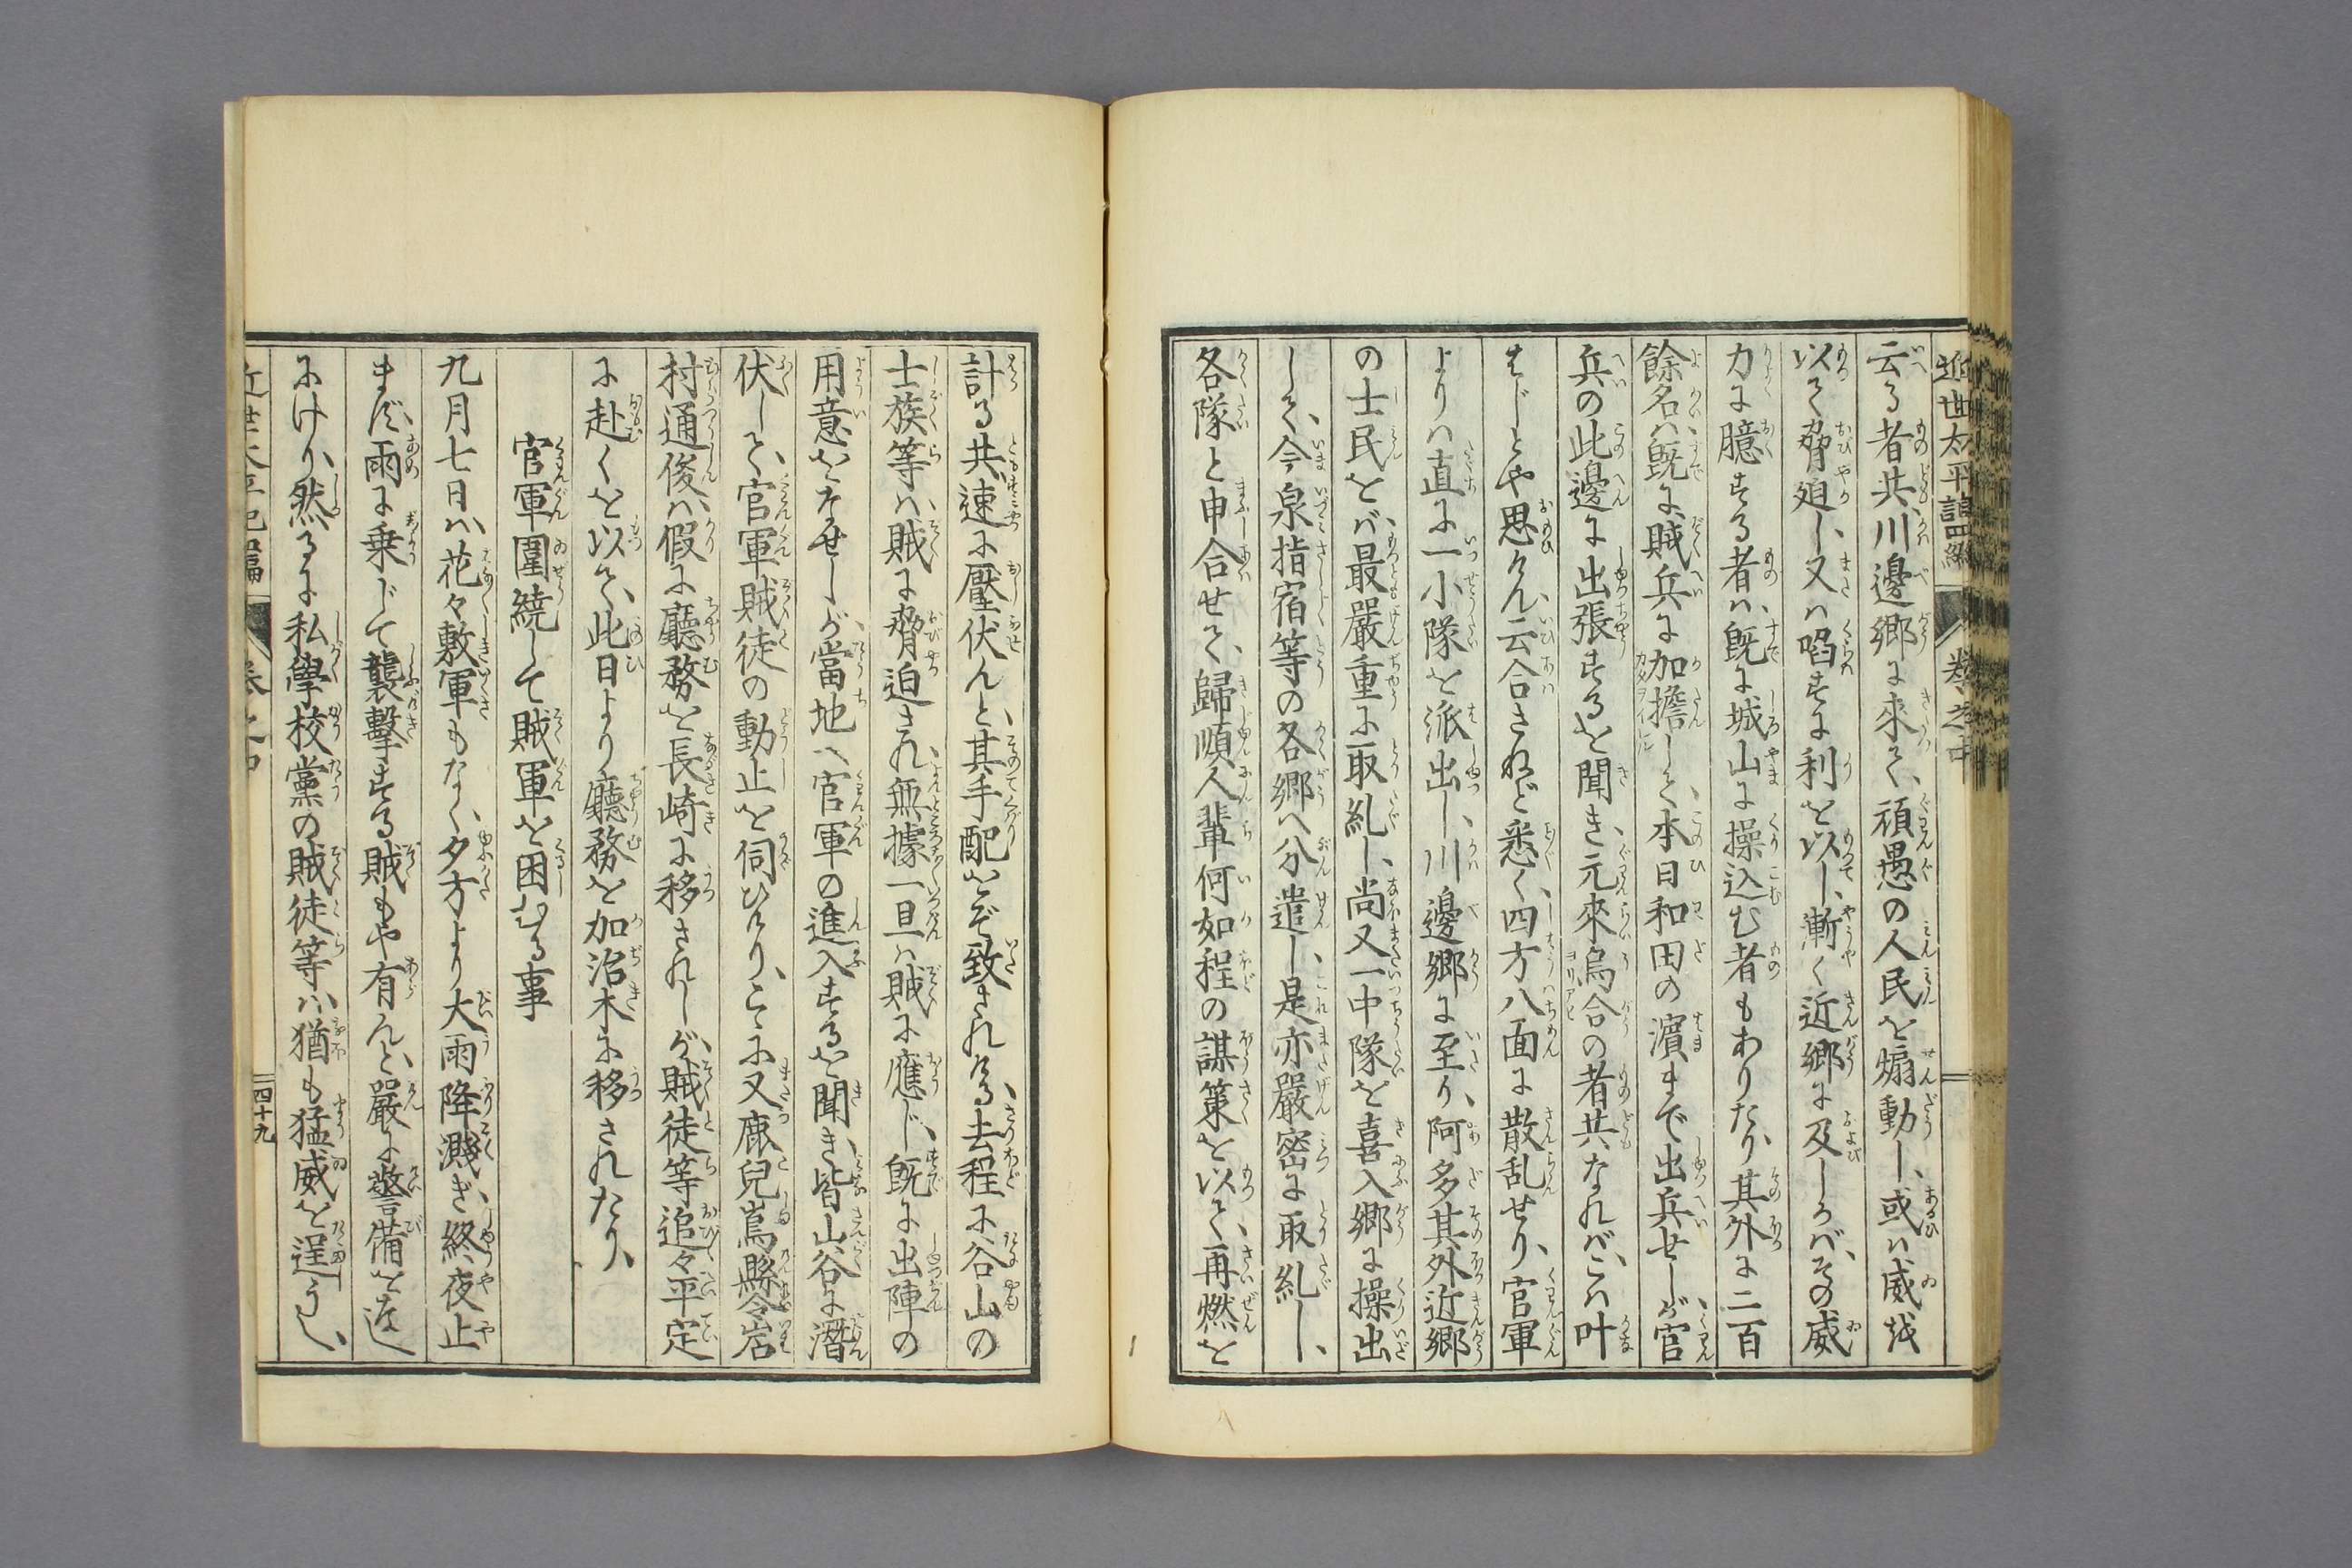 近世太平記 編 卷之中
云る者共、川邊郷に來て、頑愚の人民を煽動し、或ハ威を
以て脅迫し、又ハ啗すに利を以し、漸く近郷に及しかバ、その威
力に臆する者ハ、既に城山に操込む者もありたり、其外に二百
餘名ハ、既に賊兵に加擔して、本日和田の濵まで出兵せしが、官
兵の此邊に出張するを聞き、元來烏合の者共なれバ、こハ叶
はじとや思ひけん、云合さねど悉く、四方八面に散乱せり、官軍
よりハ直に一小隊を派出し、川邊郷に至り、阿多其外近郷
の士民をバ、最嚴重に取糺し、尚又一中隊を喜入郷に操出
して、今泉指宿等の各郷へ分遣し、是亦嚴密に取糺し、
各隊と申合せて、歸順人輩何如程の謀策を以て、再燃を
計る共、速に壓伏んと、其手配をぞ致されける、去程に谷山の
士族等ハ、賊に脅迫され、無據一旦ハ賊に應じ、既に出陣の
用意をなせしが、當地へ官軍の進入するを聞き、皆山谷に潛
伏して、官軍賊徒の動止を伺ひけり、こゝに又鹿兒嶌縣令岩
村通俊ハ、假に廳務を長崎に移されしが、賊徒等追々平定
に赴くを以て、此日より廳務を加治木に移されたり、
官軍圍繞して賊軍を困むる事
九月七日ハ、花々敷軍もなく、夕方より大雨降濺ぎ、終夜止
まず、雨に乗じて襲擊する賊もや有んと、嚴に警備をな
にけり、然るに私學校黨の賊徒等ハ、猶も猛威を逞うし、
近世太平記 編 卷之中 四十九